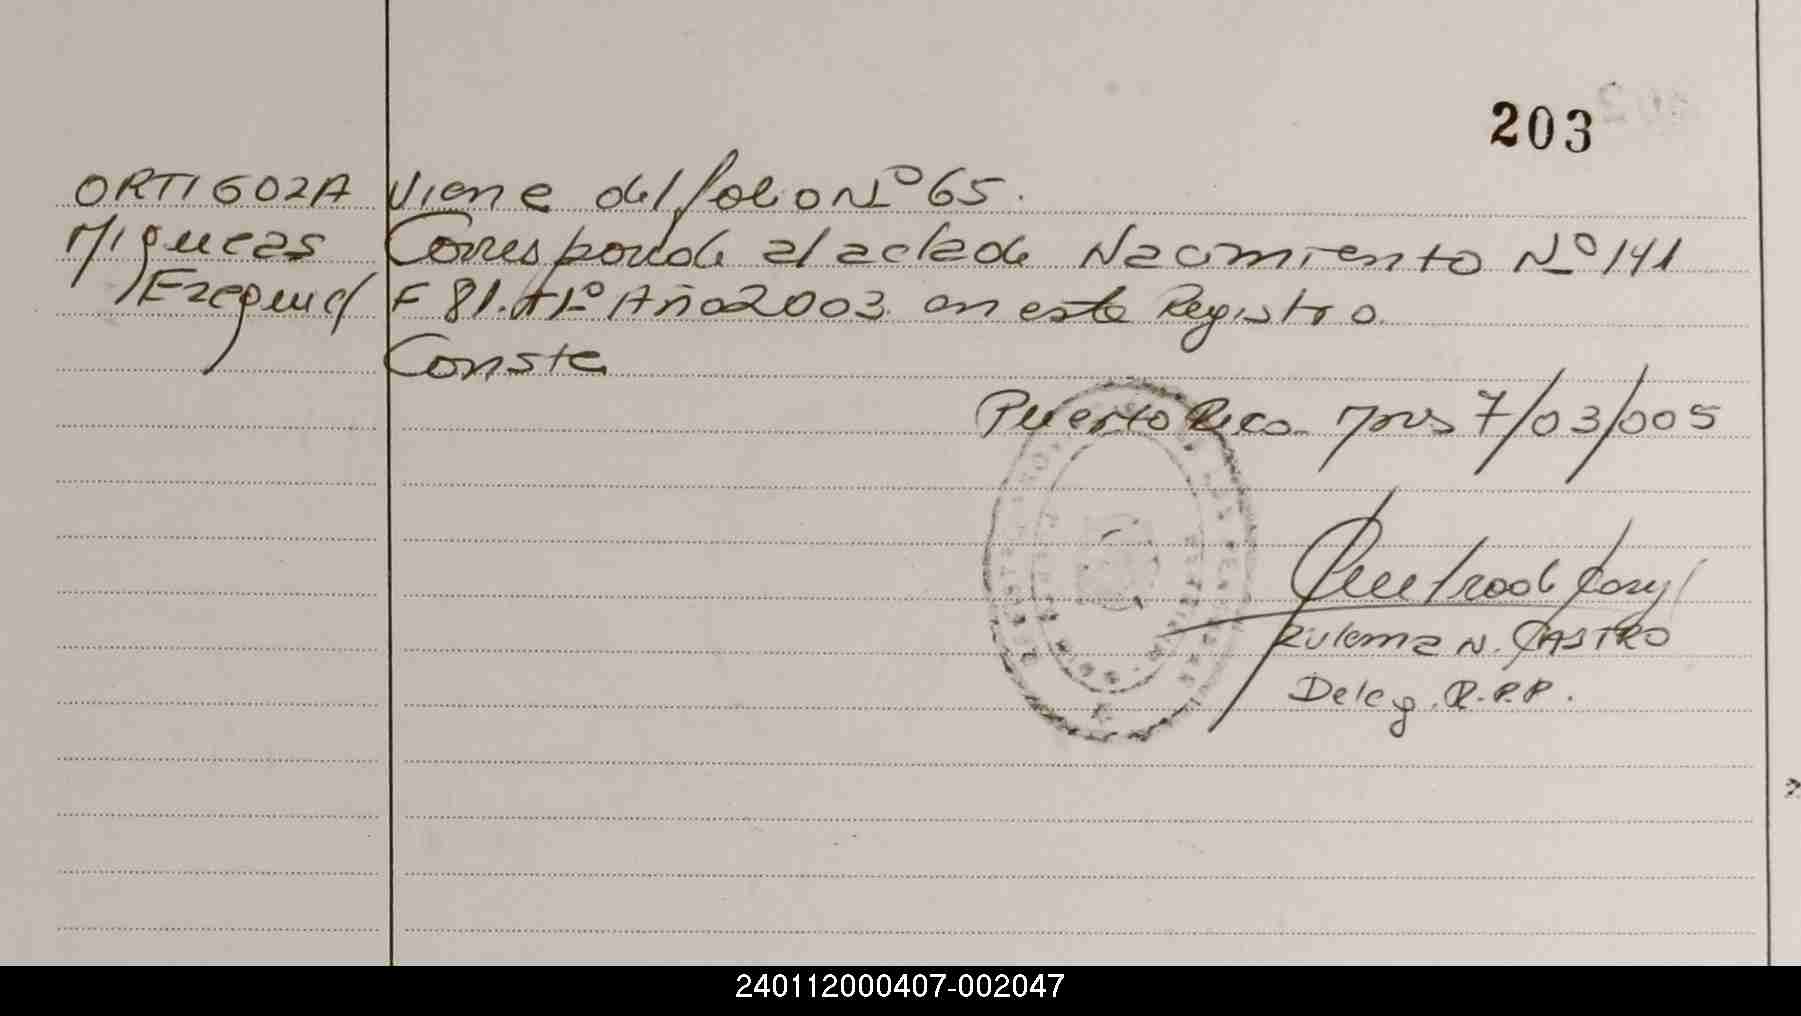 203
ORTIGOZA Viene del folio Nº 65.
Migueas Corresponde al acta de Nacimiento Nº 141
Ezequiel F 81. Tº 1º Año 2003 en este Registro.
Conste
Puerto Rico Mns 7/03/005
Zulema N. CASTRO
Deleg. R.P.P.
240112000407-002047